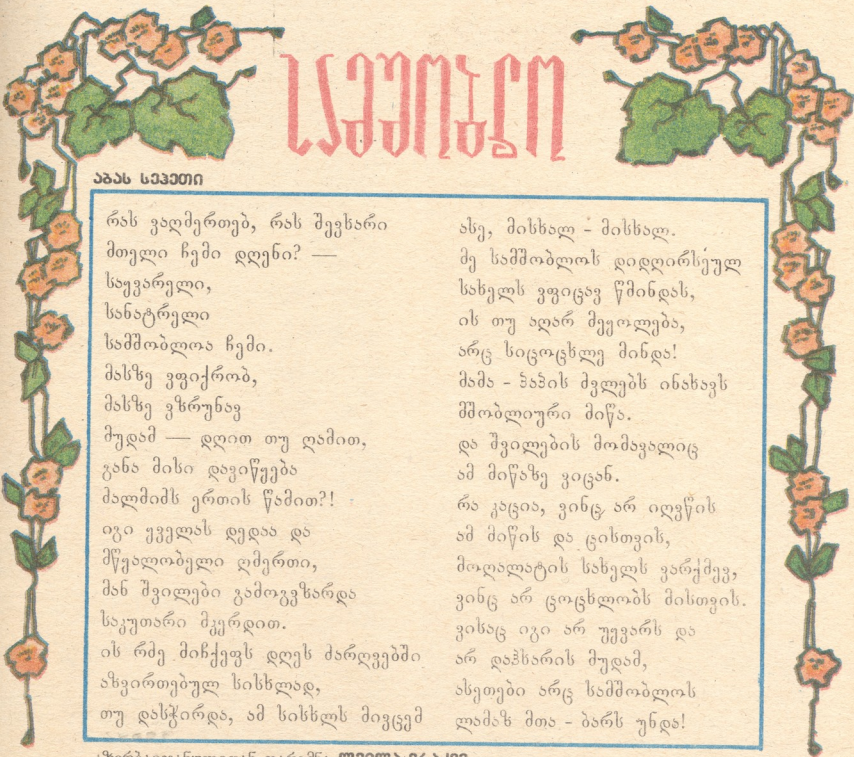 სამშობლო
აბას სეჰეთი
რას ვაღმერთებ, რას შევხარი
მთელი ჩემი დღენი? —
საყვარელი,
სანატრელი
სამშობლოა ჩემი.
მასზე ვფიქრობ,
მასზე ვზრუნავ
მუდამ — დღით თუ ღამით,
განა მისი დავიწყება
მალმიძს ერთის წამით?!
იგი ყველას დედაა და
მწყალობელი ღმერთი,
მან შვილები გამოგვზარდა
საკუთარი მკერდით.
ის რძე მიჩქეფს დღეს ძარღვებში
აზვირთებულ სისხლად,
თუ დასჭირდა, ამ სისხლს მივცემ
ასე, მისხალ - მისხალ.
მე სამშობლოს დიდღირსეულ
სახელს ვფიცავ წმინდას,
ის თუ აღარ მეყოლება,
არც სიცოცხლე მინდა!
მამა - პაპის ძვლებს ინახავს
მშობლიური მიწა.
და შვილების მომავალიც
ამ მიწაზე ვიცან.
რა კაცია, ვინც არ იღვწის
ამ მიწის და ცისთვის,
მოღალატის სახელს ვარქმევ,
ვინც არ ცოცხლობს მისთვის.
ვისაც იგი არ უყვარს და
არ დაჰხარის მუდამ,
ასეთები არც სამშობლოს
ლამაზ მთა - ბარს უნდა!